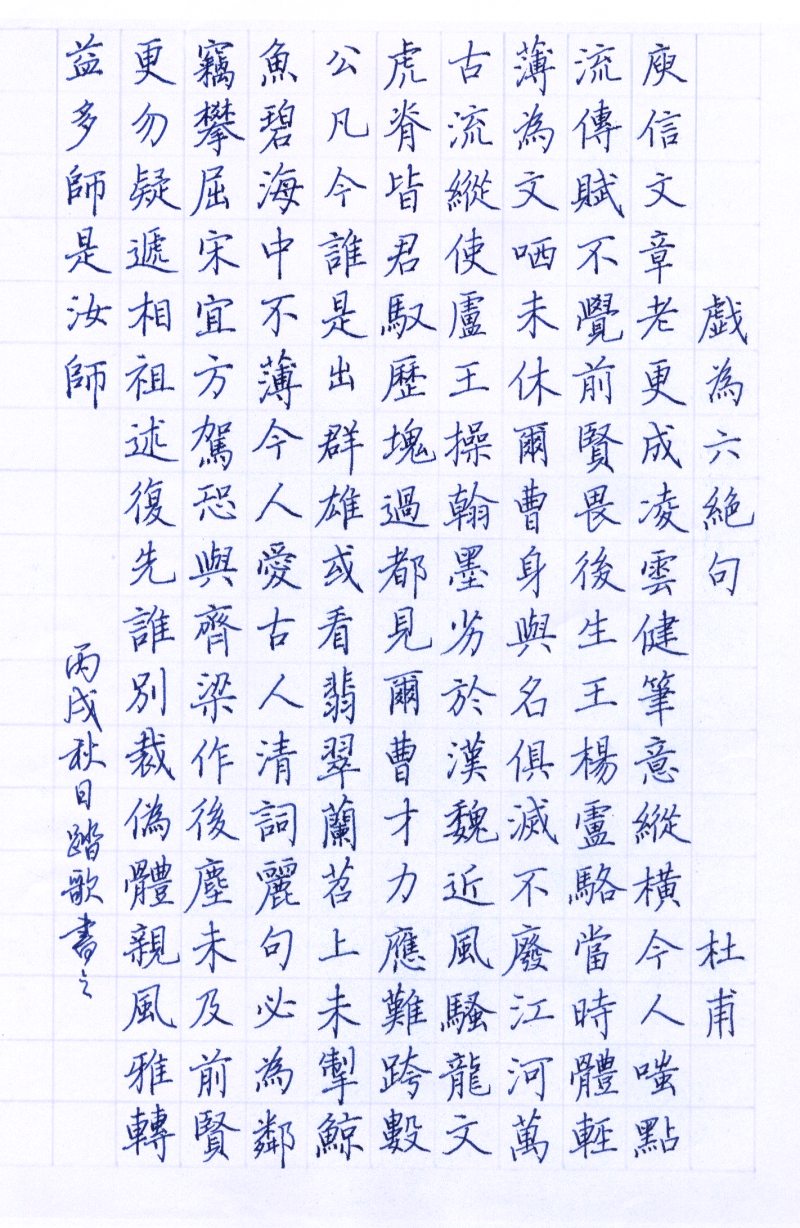 戲為六絕句 杜甫
庾信文章老更成凌雲健筆意縱橫今人嗤點
流傳賦不覺前賢畏後生王楊盧駱當時體輕
薄為文哂未休爾曹身與名俱滅不廢江河萬
古流縱使盧王操翰墨劣於漢魏近風騷龍文
虎脊皆君馭歷塊過都見爾曹才力應難跨數
公凡今誰是出群雄或看翡翠蘭苕上未掣鯨
魚碧海中不薄今人愛古人清詞麗句必為鄰
竊攀屈宋宜方駕恐與齊梁作後塵未及前賢
更勿疑遞相祖述復先誰別裁偽體親風雅轉
益多師是汝師
丙戌秋日踏歌書之